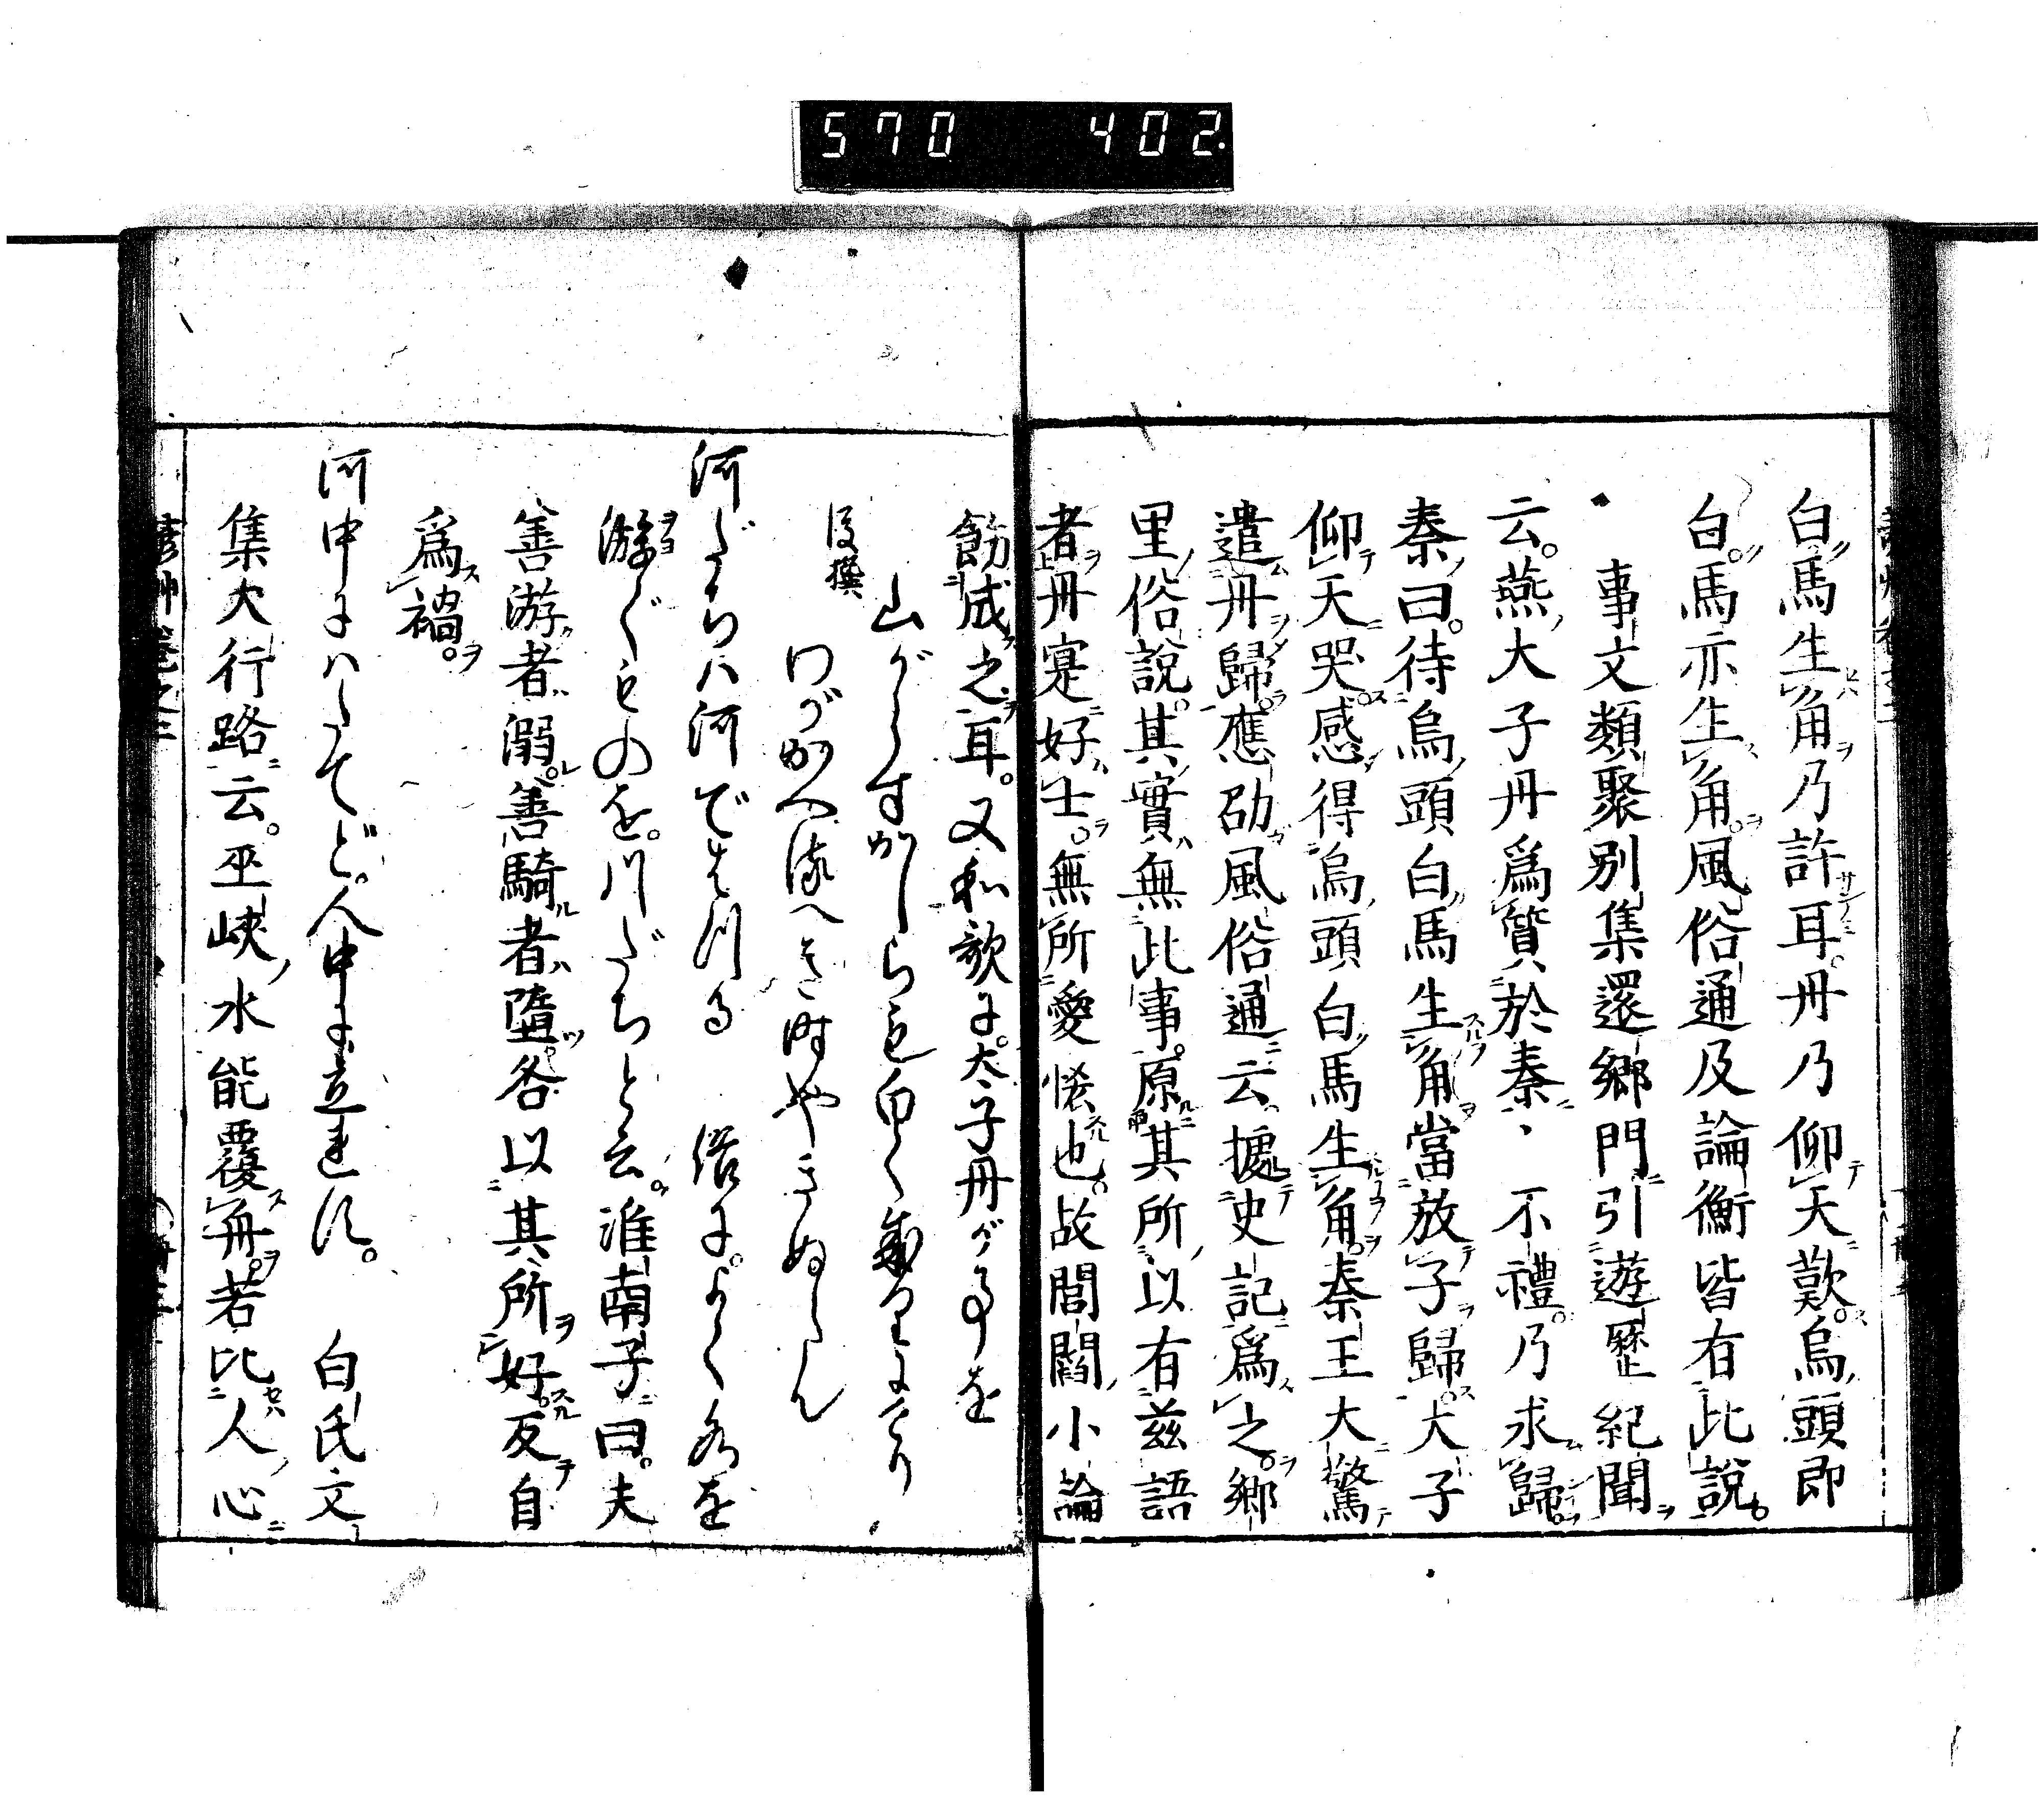 570 402
白馬生角乃許耳。丹乃仰天歎。烏頭即
白。馬亦生角。風俗通及論衡皆有此說。
事文類聚別集還鄉門引遊歷紀聞
云。燕大子丹爲質於秦、不禮。乃求歸。
秦曰。待烏頭白馬生角當放子歸。大子
仰天哭。感得烏頭白馬生角。秦王大驚
遣丹歸。應劭風俗通云。據史記爲之。鄉
里俗說。其實無此事。原其所以有茲語
者丹寔好士。無所愛悋也。故閭閻小論
餝成之耳。又和歌に。太子丹が事を
山がらすかしらも白く成にけり
わがかへるべき時やきぬらん
後撰
河だちハ河ではつる 俗に。よく水を
游ぐものを。川だちと云。淮南子曰。夫
善游者溺。善騎者墮。各以其所好反自
爲禍。
河中にハたてど。人中に立れず。 白氏文
集大行路云。巫峽水能覆舟。若比人心